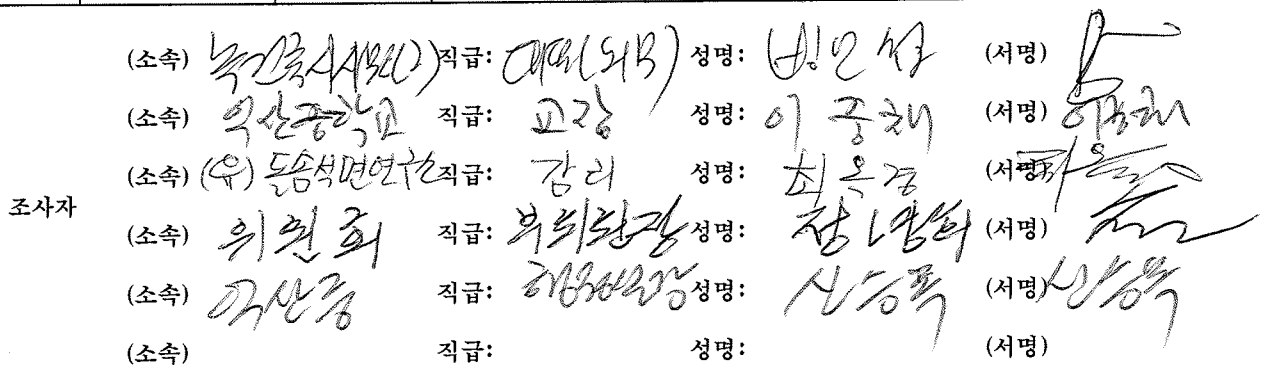 (소속) 직급: 대표 성명: (서명)
(소속) 익산중학교 직급: 교장 성명: 이중채 (서명) 이중채
(소속) (유) 돌솜석면연구원 직급: 감리 성명: 최옥경 (서명)
조사자
(소속) 위원회 직급: 부위원장 성명: (서명)
(소속) 익산중 직급: 행정실장 성명: 신승목 (서명) 신승목
(소속) 직급: 성명: (서명)